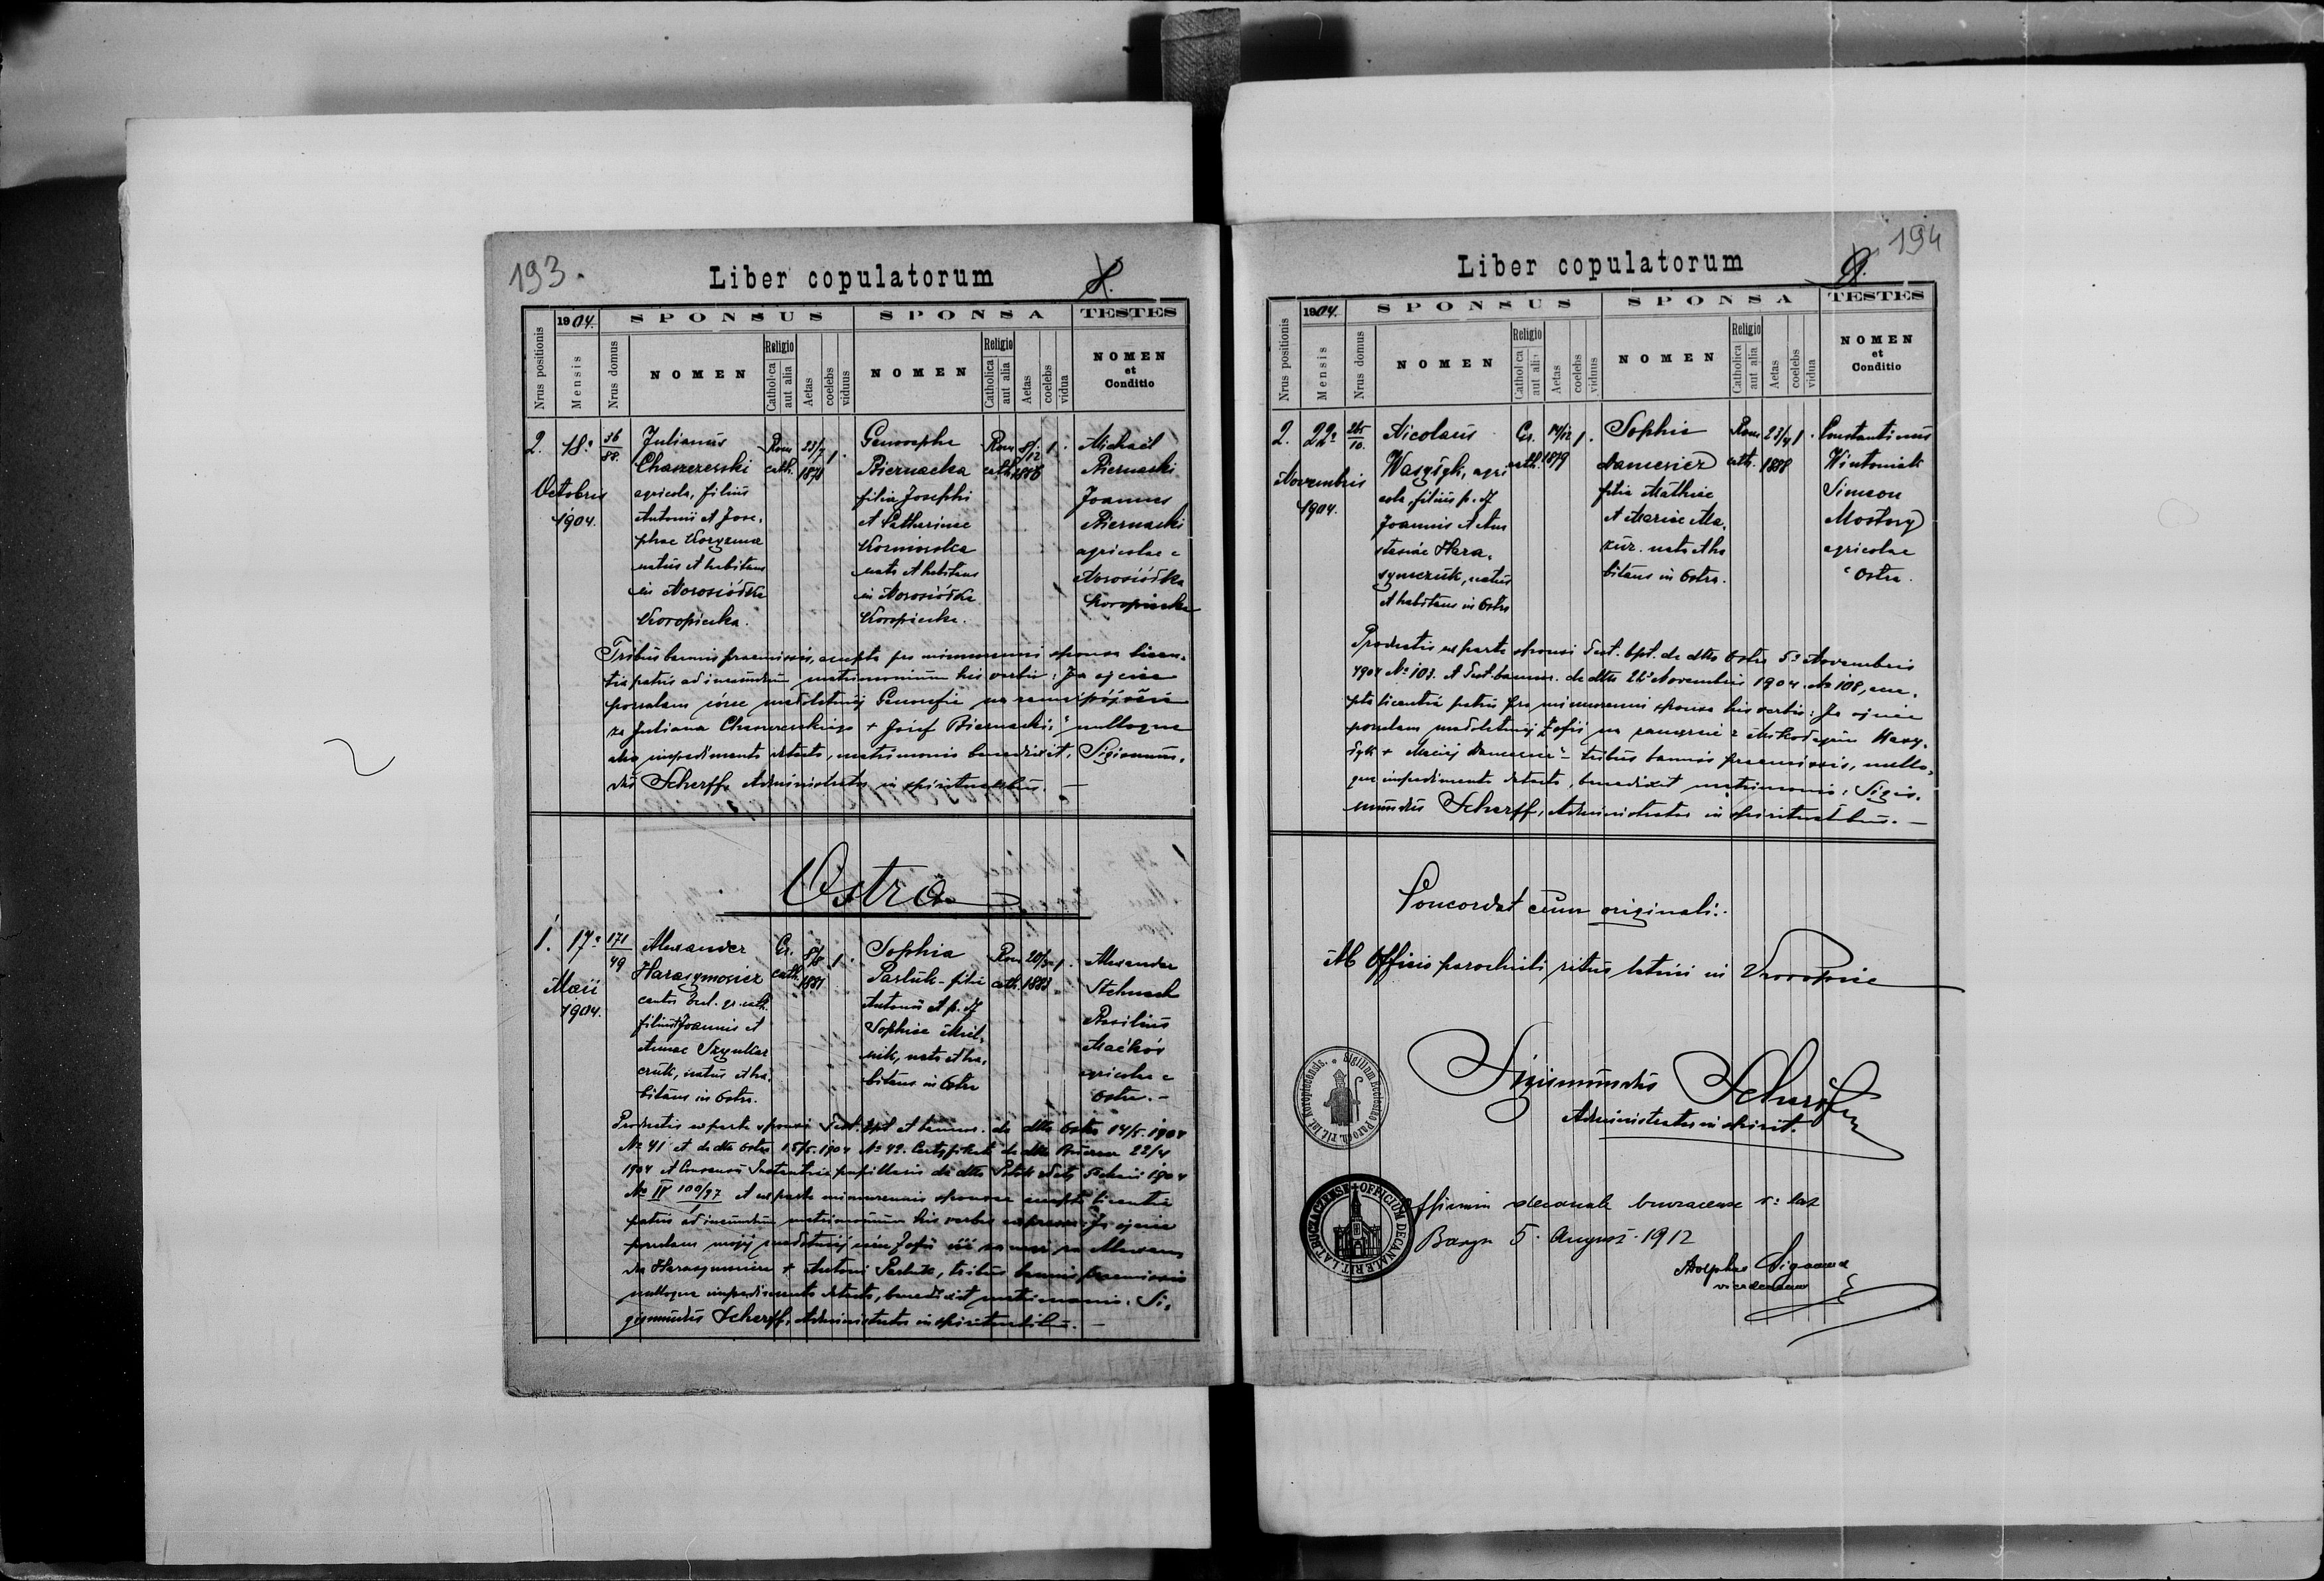 193.
Liber copulatorum
Nrus positionis
1904.
Mensis
Nrus domus
SPONSUS
NOMEN
Religio
Catholica aut alia
Aetas
coelebs
viduus
SPONSA
NOMEN
Religio
Catholica aut alia
Aetas
coelebs
vidua
TESTES
NOMEN
et
Conditio
2. 18a
Octobris
1904.
36
88.
Julianus
Chaszczewski
agricola, filius
Antonii et Jose-
phae
natus et habitans
in Nowosiółka
Koropiecka.
Rom.
cath.
23/7
1878
1.
Genovepha
Biernacka
filia Josephi
et Catharinae
nata et habitans
in Nowosiółka
Koropiecka.
Rom
cath.
8/12
1886
1.
Michaël
Biernacki
Joannes
Biernacki
agricolae e
Nowosiółka
Koropiecka
Tribus bannis praemissis, accepta pro minorenni sponsa licen-
tia patris ad ineundum matrimonium his verbis: Ja ojciec
pozwalam córce małoletniej Genowefie na zamążpójście
za Juliana Chaszczewskiego + Józef Biernacki," nulloque
alio impedimento detecto, matrimonio benedixit, Sigismun-
dus Scherff, Administrator in spiritualibus. —
Ostra
1. 17a
Maii
1904.
171
49
Alexander
Harasymowicz
cantor Eccl. gr. cath.
filius Joannis et
Annae
natus et ha-
bitans in Ostra.
Gr.
cath.
8/8
1881
1.
Sophia
Pawluk - filia
Antonii et p. d.
Sophiae Miel-
nik, nata et ha-
bitans in Ostra
Rom
cath.
1883
1.
Alexander
Stelmach
Basilius
agricolae e
Ostra. —
Productis ex parte sponsi Test. bpt. et bannor. de dtto Ostra 14/5. 1904
No 41 et de dtto Ostra 15/5. 1904 No 42.
1904
No IV 100/97 et ex parte minorennis sponsae accepta licentia
patris ad ineundum matrimonium his verbis expressa: Ja ojciec
pozwalam mojej małoletniej córce Zofii iść za mąż za Alexan-
dra Harasymowicza + Antoni Pawluk, tribus bannis praemissis
nulloque impedimento detecto, benedixit matrimonio. Si-
gismundus Scherff, Administrator in spiritualibus. —
194
Liber copulatorum
Nrus positionis
1904.
Mensis
Nrus domus
SPONSUS
NOMEN
Religio
Catholica aut alia
Aetas
coelebs
viduus
SPONSA
NOMEN
Religio
Catholica aut alia
Aetas
coelebs
vidua
TESTES
NOMEN
et
Conditio
2. 22a
Novembris
1904.
10.
Nicolaus
agri-
cola, filius p. d.
Joannis et Ana-
stasiae Hara-
symczuk, natus
et habitans in Ostra
Gr.
cath.
14/12
1879
1.
Sophia
filia Mathiae
et Mariae Ma-
zur. nata et ha-
bitans in Ostra.
Rom
cath.
1.
Constantinus
Wintoniak
Simeon
Mostowy
agricolae
e Ostra.
Productis ex parte sponsi Test. bpt. de dtto Ostra 5a Novembris
1904 No 103. et Test. bannor. de dtto 22a Novembris 1904. No 108, acce-
pta licentia patris pro minorenni sponsa his verbis: Ja ojciec
pozwalam małoletniej Zofii na
tribus bannis praemissis, nullo-
que impedimento detecto, benedixit matrimonio, Sigis-
mundus Scherff, Administrator in spiritualibus. —
Concordat cum originali:.
Ab Officio parochiali ritus latini in Koropiec
Sigismundus Scherff
Administrator in spirit.
Sigillum Ecclesiae Paroch. rit. lat. Koropiecensis.
OFFICIUM DECANALE RIT. LAT. BUCZACZENSE
Officium decanale buczacense r. lat
Barysz 5. August. 1912
Adolphus
vicedecanus